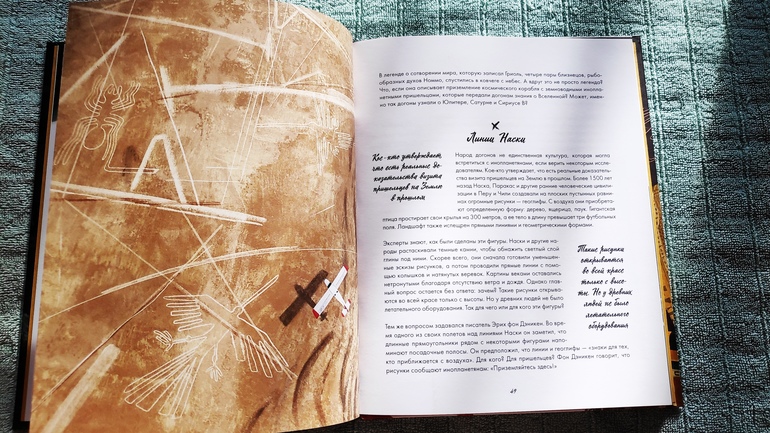 В легенде о сотворении мира, которую записал Гриоль, четыре пары близнецов, рыбо-
образных духов Номмо, спустились в ковчеге с небес. А вдруг это не просто легенда?
Что, если она описывает приземление космического корабля с земноводными инопла-
нетными пришельцами, которые передали догонам знания о Вселенной? Может, имен-
но так догоны узнали о Юпитере, Сатурне и Сириусе В?
Линии Наски
Кое-кто утверждает,
что есть реальные до-
казательства визита
пришельцев на Землю
в прошлом
Народ догонов не единственная культура, которая могла
встретиться с инопланетянами, если верить некоторым иссле-
дователям. Кое-кто утверждает, что есть реальные доказательст-
ва визита пришельцев на Землю в прошлом. Более 1500 лет
назад Наска, Паракас и другие ранние человеческие цивили-
зации в Перу и Чили создавали на плоских пустынных равни-
нах огромные рисунки — геоглифы. С воздуха они приобрета-
ют определенную форму: дерево, ящерица, паук. Гигантская
птица простирает свои крылья на 300 метров, а ее тело в длину превышает три футбольных
поля. Ландшафт также испещрен прямыми линиями и геометрическими формами.
Эксперты знают, как были сделаны эти фигуры. Наски и другие на-
роды растаскивали темные камни, чтобы обнажить светлый слой
глины под ними. Скорее всего, они сначала готовили уменьшен-
ные эскизы рисунков, а потом проводили прямые линии с помо-
щью колышков и натянутых веревок. Картины веками оставались
нетронутыми благодаря отсутствию ветра и дождя. Однако глав-
ный вопрос остается без ответа: зачем? Такие рисунки открыва-
ются во всей красе только с высоты. Но у древних людей не было
летательного оборудования. Так для чего или для кого эти фигуры?
Такие рисунки
открываются
во всей красе
только с высо-
ты. Но у древних
людей не было
летательного
оборудования
Тем же вопросом задавался писатель Эрих фон Дэникен. Во вре-
мя одного из своих полетов над линиями Наски он заметил, что
длинные прямоугольники рядом с некоторыми фигурами напо-
минают посадочные полосы. Он предположил, что линии и геоглифы — «знаки для тех,
кто приближается с воздуха». Для кого? Для пришельцев? Фон Дэникен говорит, что
рисунки сообщают инопланетянам: «Приземляйтесь здесь!»
49